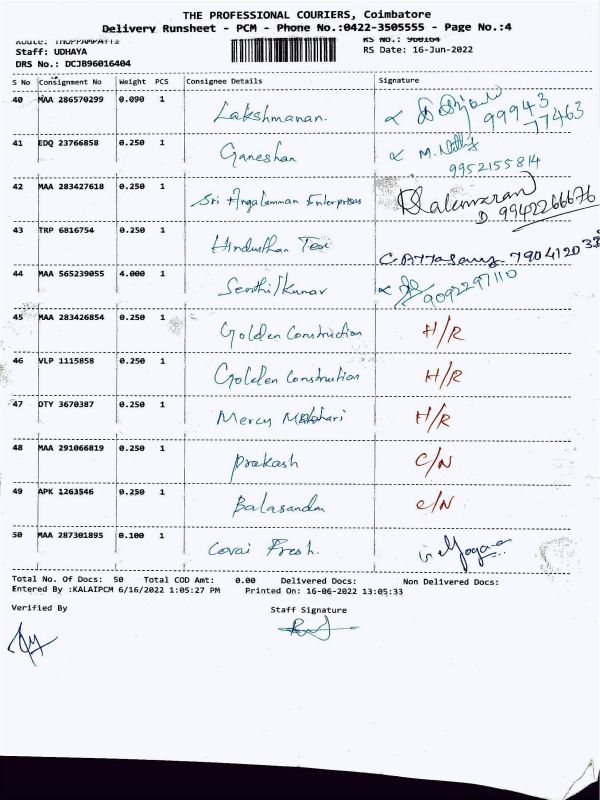 THE PROFESSIONAL COURIERS, Coimbatore
Delivery Runsheet - PCM - Phone No.:0422-3505555 - Page No.:4
Route: THOPPAMPATTI RS No.: 960164
Staff: UDHAYA RS Date: 16-Jun-2022
DRS No.: DCJB96016404
S No Consignment No Weight PCS Consignee Details Signature
40 MAA 286570299 0.090 1 Lakshmanan. 99943 77463
41 EDQ 23766858 0.250 1 Ganeshan 9952155814
42 MAA 283427618 0.250 1 Sri Angalamman Enterprises 9942266676
43 TRP 6816754 0.250 1 Hindusthan Tex
44 MAA 565239055 4.000 1 Senthilkumar 9092297110
45 MAA 283426854 0.250 1 Golden Construction H/R
46 VLP 1115858 0.250 1 Golden Construction H/R
47 DTY 3670387 0.250 1 Mercy H/R
48 MAA 291066819 0.250 1 Prakash C/N
49 APK 1263546 0.250 1 C/N
50 MAA 287301895 0.100 1 Covai Fresh.
Total No. Of Docs: 50 Total COD Amt: 0.00 Delivered Docs: Non Delivered Docs:
Entered By :KALAIPCM 6/16/2022 1:05:27 PM Printed On: 16-06-2022 13:05:33
Verified By Staff Signature